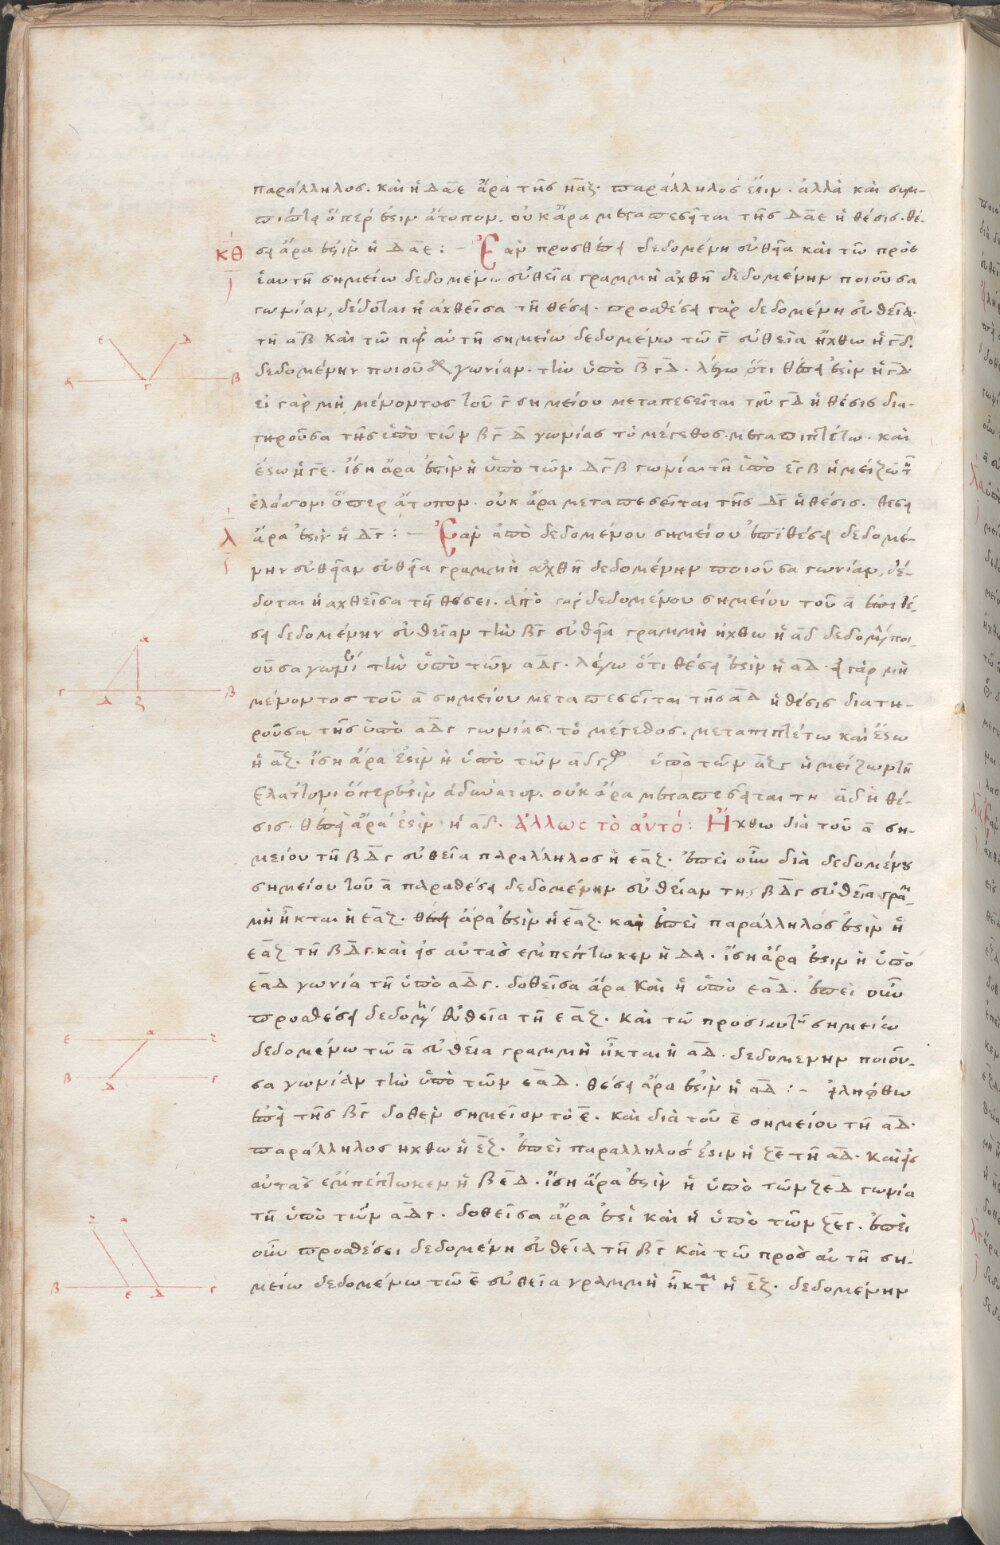 παράλληλος. καὶ ἡ ΔΑΕ ἄρα τῆς ΗΑΖ. παράλληλός ἐστιν. ἀλλὰ καὶ συμ-
πίπτει ὅπερ ἐστὶν ἄτοπον. οὐκ ἄρα μεταπεσεῖται τῆς ΔΑΕ ἡ θέσις. θέ-
κθ σει ἄρα ἐστὶν ἡ ΔΑΕ: – Ἐὰν πρὸς θέσει δεδομένη εὐθεῖα καὶ τῶ πρὸς
ἑαυτῆ σημείω δεδομένω εὐθεῖα γραμμὴ ἀχθῆ δεδομένην ποιοῦσα
γωνίαν, δέδοται ἡ ἀχθεῖσα τῆ θέσει. πρὸς θέσει γὰρ δεδομένη εὐθεῖα.
τῆ αβ καὶ τῶ πρὸς αὐτῆ σημείω δεδομένω τῶ γ εὐθεῖα ἤχθω ἡ γδ.
δεδομένην ποιοῦσα γωνίαν. τὴν ὑπὸ βγδ. λέγω ὅτι θέσει ἐστὶν ἡ γδ
εἰ γὰρ μὴ, μένοντος τοῦ γ σημείου μεταπεσεῖται τῆς γδ ἡ θέσις δια-
τηροῦσα τῆς ὑπὸ τῶν βγδ γωνίας τὸ μέγεθος. μεταπιπτέτω. καὶ
ἔστω ἡ γε. ἴση ἄρα ἐστὶν ἡ ὑπὸ τῶν δγβ γωνία τῆ ὑπὸ εγβ ἡ μείζων τῆ
ἐλάσσονι ὅπερ ἄτοπον. οὐκ ἄρα μεταπεσεῖται τῆς δγ ἡ θέσις. θέσει
λ ἄρα ἐστὶν ἡ δγ: – Ἐὰν ἀπὸ δεδομένου σημείου ἐπὶ θέσει δεδομέ-
νην εὐθεῖαν εὐθεῖα γραμμὴ ἀχθῆ δεδομένην ποιοῦσα γωνίαν, δέ-
δοται ἡ ἀχθεῖσα τῆ θέσει. ἀπὸ γὰρ δεδομένου σημείου τοῦ α ἐπὶ θέ-
σει δεδομένην εὐθεῖαν τὴν βγ εὐθεῖα γραμμὴ ἤχθω ἡ αδ δεδομένην ποι-
οῦσα γωνίαν τὴν ὑπὸ τῶν αδγ. λέγω ὅτι θέσει ἐστὶν ἡ αδ. εἰ γὰρ μὴ
μένοντος τοῦ α σημείου μεταπεσεῖται τῆς αδ ἡ θέσις διατη-
ροῦσα τῆς ὑπὸ αδγ γωνίας τὸ μέγεθος. μεταπιπτέτω καὶ ἔστω
ἡ αζ. ἴση ἄρα ἐστὶν ἡ ὑπὸ τῶν αδγ τῆ ὑπὸ τῶν αζγ ἡ μείζων τῆ
ἐλάττονι ὅπερ ἐστὶν ἀδύνατον. οὐκ ἄρα μεταπεσεῖται τῆς αδ ἡ θέ-
σις. θέσει ἄρα ἐστὶν ἡ αδ. Ἄλλως τὸ αὐτό: Ἤχθω διὰ τοῦ α ση-
μείου τῆ βδγ εὐθεῖα παράλληλος ἡ εαζ. ἐπεὶ οὖν διὰ δεδομένου
σημείου τοῦ α παρὰ θέσει δεδομένην εὐθεῖαν την βδγ εὐθεῖα γραμ-
μὴ ἦκται ἡ εαζ. θέσει ἄρα ἐστὶν ἡ εαζ. καὶ ἐπεὶ παράλληλός ἐστιν ἡ
εαζ τῆ βδγ. καὶ εἰς αὐτὰς ἐμπέπτωκεν ἡ δα. ἴση ἄρα ἐστιν ἡ ὑπὸ
εαδ γωνία τῆ ὑπὸ αδγ. δοθεῖσα ἄρα καὶ ἡ ὑπὸ εαδ. ἐπεὶ οὖν
πρὸς θέσει δεδομένη εὐθεῖα τῆ εαζ. καὶ τῶ πρὸς αυτῆ σημείω
δεδομένω τῶ α εὐθεῖα γραμμὴ ἦκται ἡ αδ. δεδομενην ποιοῦ-
σα γωνίαν τὴν ὑπὸ τῶν εαδ. θέσει ἄρα ἐστὶν ἡ αδ: – εἰλήφθω
ἐπὶ τῆς βγ δοθὲν σημεῖον τὸ ε. καὶ διὰ τοῦ ε σημείου τῆ αδ.
παράλληλος ηχθω ἡ εζ. ἐπεὶ παραλληλός ἐστιν ἡ ζε τῆ αδ. καὶ εἰς
αὐτὰς ἐμπέπτωκεν ἡ βεδ. ἴση ἄρα ἐστὶν ἡ ὑπὸ τῶν ζεδ γωνία
τῆ ὑπὸ τῶν αδγ. δοθεῖσα ἄρα ἐστὶ καὶ ἡ ὑπὸ τῶν ζεγ. ἐπεὶ
οὖν πρὸς θέσει δεδομένη εὐθεῖα τῆ βγ καὶ τῶ πρὸς αὐτῆ ση-
μείω δεδομένω τῶ ε εὐθεῖα γραμμὴ ἦκται ἡ εζ. δεδομένην
ε Δ
α γ β
α
γ Δ ζ β
ε α ζ
β Δ γ
ζ α
β ε Δ γ